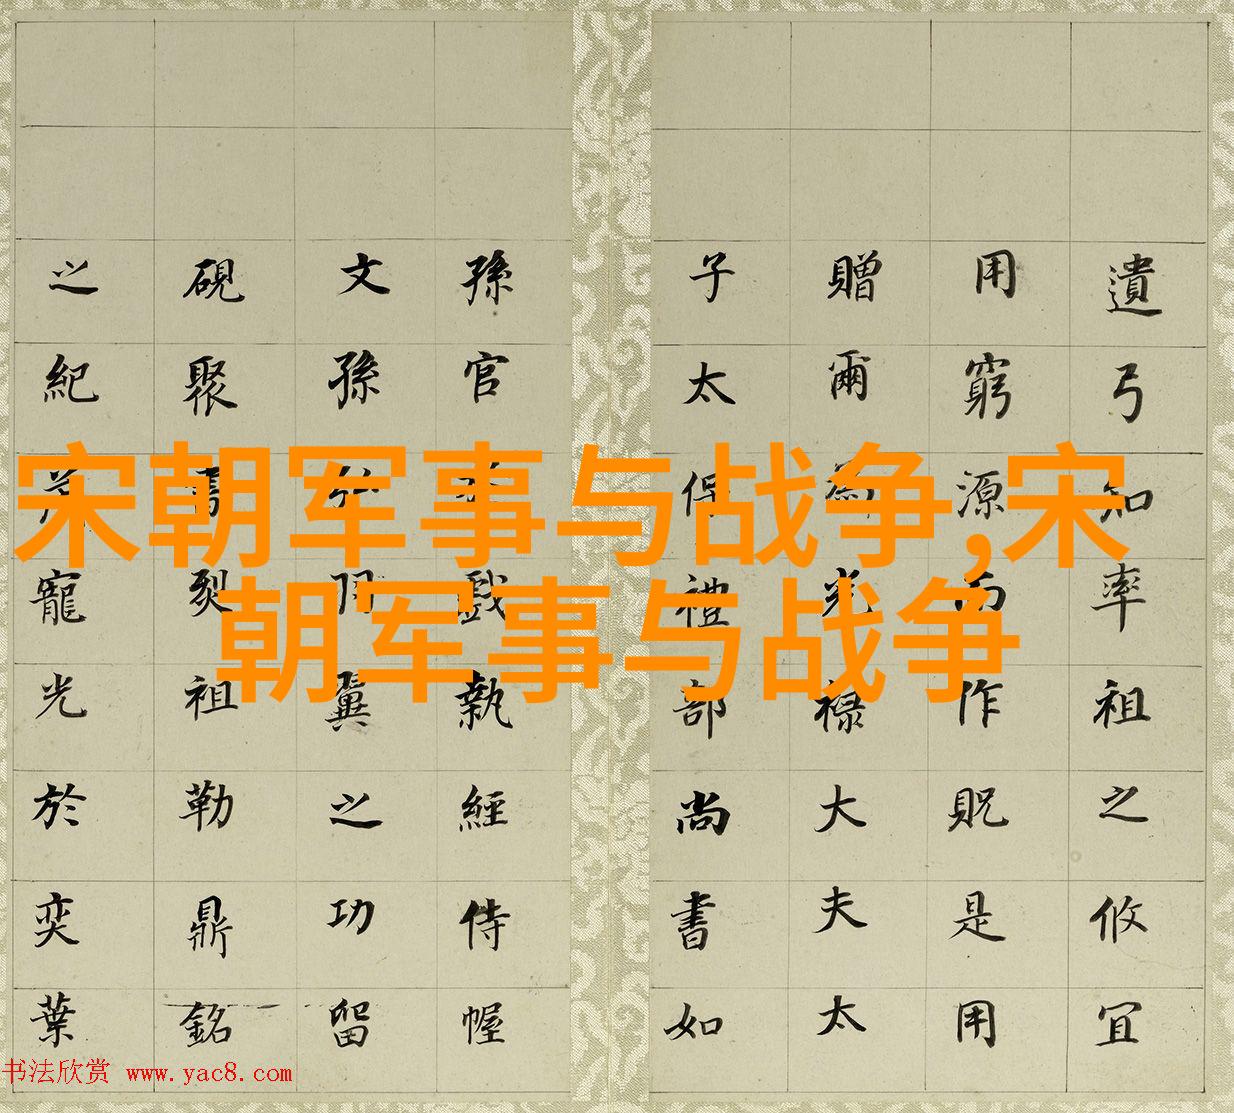 遺弓知率祖之攸宜
用窮源而作貺是用
贈爾為光祿大夫太
子太保禮部尚書如
孫官戲執經侍幄
文孫弘翼之功留
硯聚書烈祖勒鼎銘
之紀寵光於奕葉
宋朝军事与战争,宋
朝军事与战争
书法欣赏 www.yac8.com